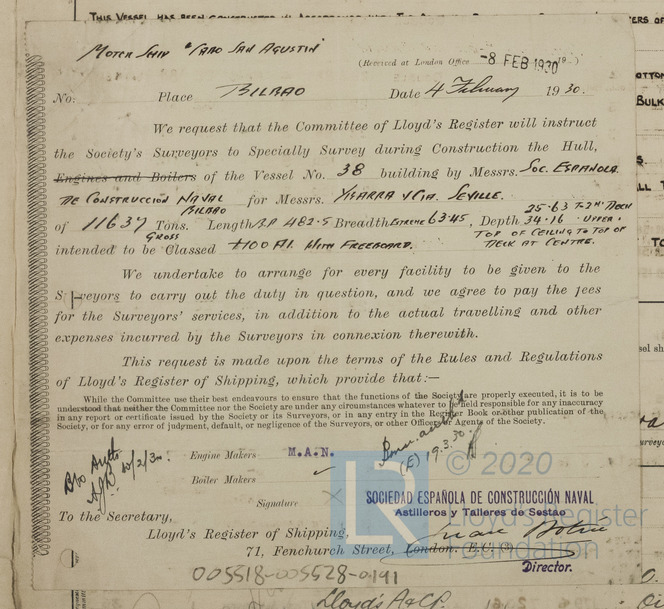 THIS VESSEL HAS BEEN CONSTRUCTED
MOTOR SHIP "CABO SAN AGUSTIN"
(Received at London Office -8 FEB 1930 19 )
No. Place BILBAO Date 4 February 1930.
We request that the Committee of Lloyd's Register will instruct
the Society's Surveyors to Specially Survey during Construction the Hull,
Engines and Boilers of the Vessel No. 38 building by Messrs. Soc. ESPAÑOLA
DE CONSTRUCCION NAVAL BILBAO for Messrs. YBARRA Y CIA. SEVILLE.
of 11637 GROSS Tons. Length B.P 482.5 Breadth EXTREME 63.45, Depth 25.63 TO 2ND DECK 34.16 UPPER.
TOP OF CEILING TO TOP OF DECK AT CENTRE.
intended to be Classed +100 A1. WITH FREEBOARD.
We undertake to arrange for every facility to be given to the
Surveyors to carry out the duty in question, and we agree to pay the fees
for the Surveyors' services, in addition to the actual travelling and other
expenses incurred by the Surveyors in connexion therewith.
This request is made upon the terms of the Rules and Regulations
of Lloyd's Register of Shipping, which provide that:—
While the Committee use their best endeavours to ensure that the functions of the Society are properly executed, it is to be
understood that neither the Committee nor the Society are under any circumstances whatever to be held responsible for any inaccuracy
in any report or certificate issued by the Society or its Surveyors, or in any entry in the Register Book or other publication of the
Society, or for any error of judgment, default, or negligence of the Surveyors, or other Officers or Agents of the Society.
Engine Makers M.A.N.
(E) 19.3.30
10/2/30
Boiler Makers
Signature
SOCIEDAD ESPAÑOLA DE CONSTRUCCIÓN NAVAL
Astilleros y Talleres de Sestao
Director.
To the Secretary,
Lloyd's Register of Shipping,
71, Fenchurch Street, London. E.C.
LR © 2020
Lloyd's Register
Foundation
005518-005528-0191
Lloyd's A & C P.